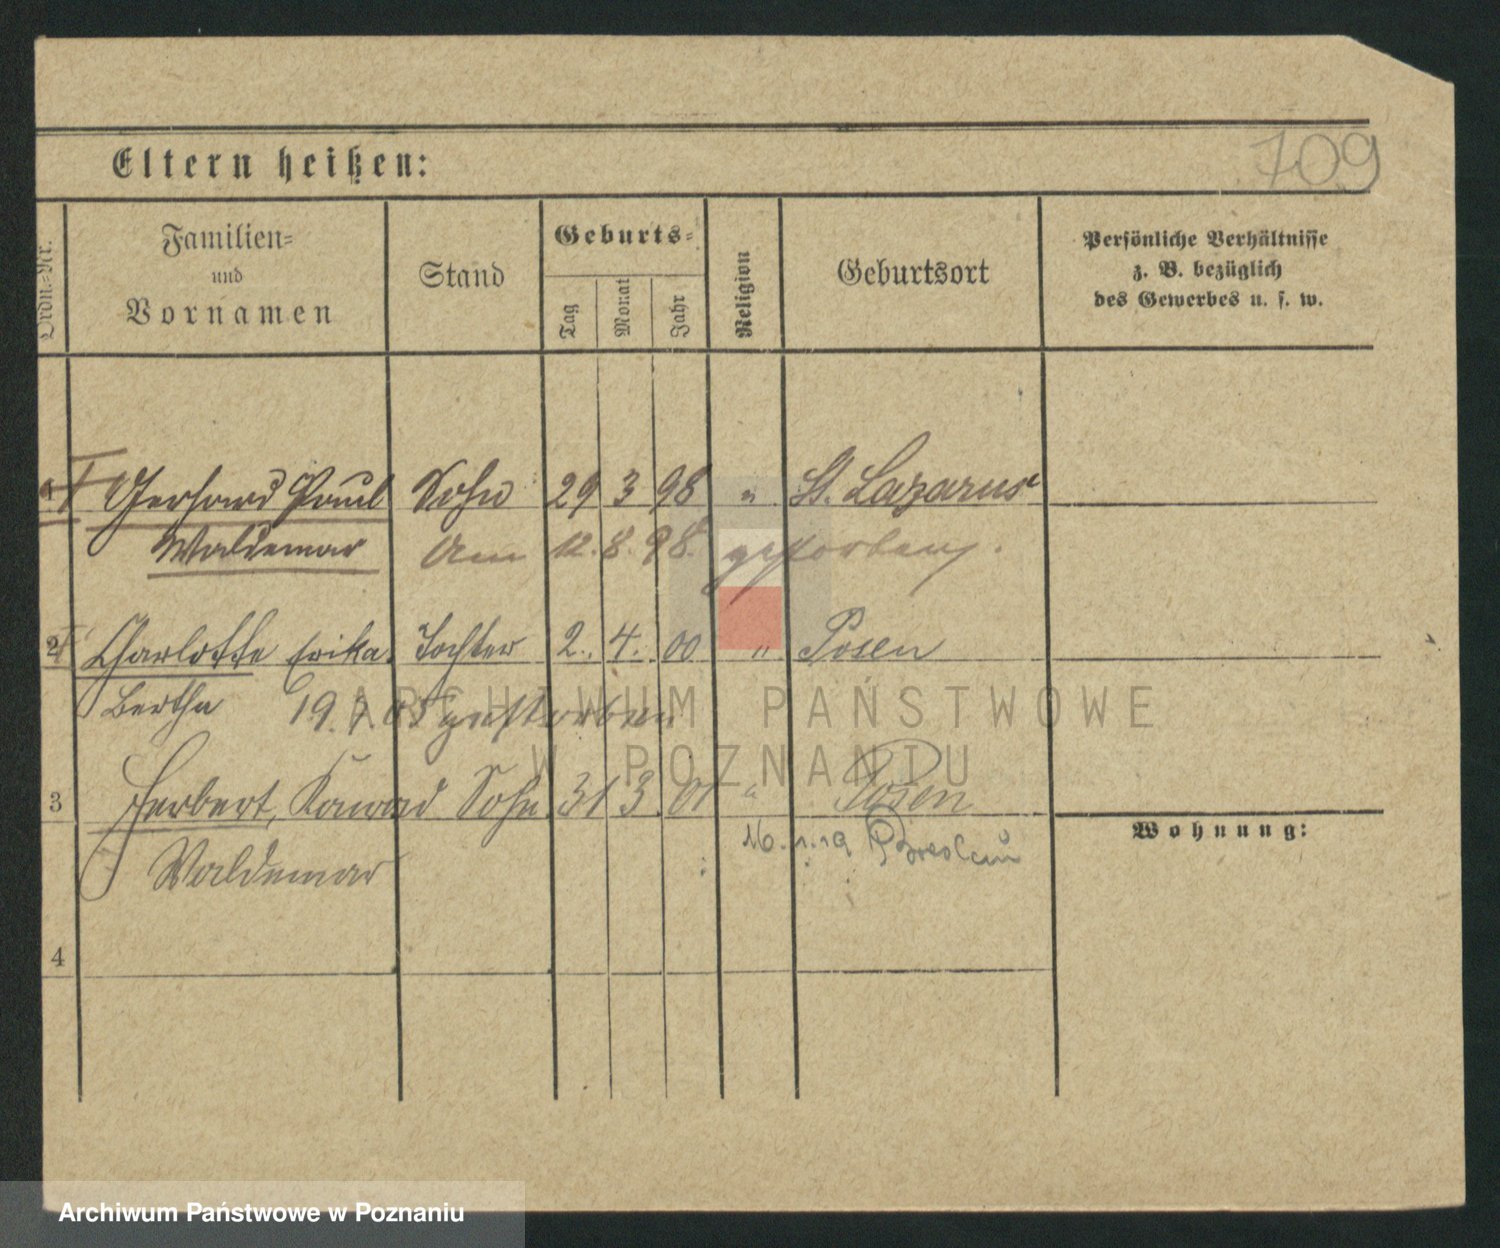 709
Eltern heißen:
Ordn.-Nr.
Familien-
und
Vornamen
Stand
Geburts-
Tag
Monat
Jahr
Religion
Geburtsort
Persönliche Verhältnisse
z. B. bezüglich
des Gewerbes u. s. w.
1 Gerhard Paul Sohn 29 3 98 " St. Lazarus
Waldemar Am 12. 8. 98. gestorben.
2 Charlotte Erika Tochter 2. 4. 00 " Posen
Bertha 19.7.05 gestorben
3 Herbert, Konrad Sohn 31 3 01 " Posen
Wohnung:
Waldemar 16.1.19 Breslau
4
ARCHIWUM PAŃSTWOWE
W POZNANIU
Archiwum Państwowe w Poznaniu